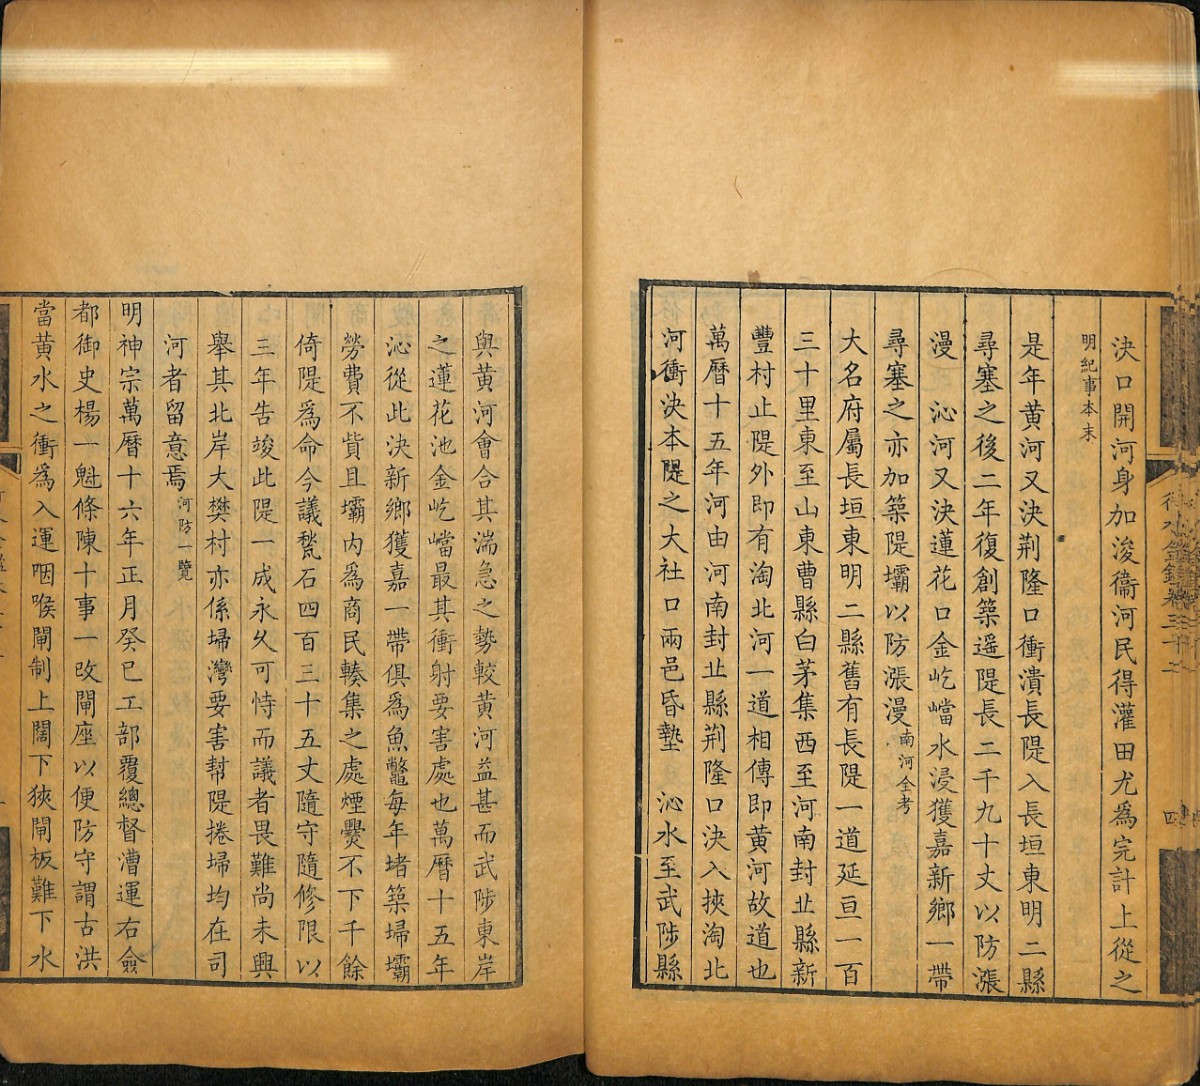 決口開河身加浚衞河民得灌田尤爲完計上從之
明紀事本末
是年黄河又決荆隆口衝潰長隄入長垣東明二縣
尋塞之後二年復創築遥隄長二千九十丈以防漲
漫　沁河又決蓮花口金屹嵣水浸獲嘉新鄉一帶
尋塞之亦加築隄壩以防漲漫南河全考
大名府屬長垣東明二縣舊有長隄一道延亘一百
三十里東至山東曹縣白茅集西至河南封丠縣新
豐村止隄外即有淘北河一道相傳即黄河故道也
萬曆十五年河由河南封丠縣荆隆口決入挾淘北
河衝決本隄之大社口兩邑昏墊　沁水至武陟縣
與黄河會合其湍急之勢較黄河益甚而武陟東岸
之蓮花池金屹嵣最其衝射要害處也萬曆十五年
沁從此決新鄉獲嘉一帶俱爲魚鼈每年堵築埽壩
勞費不貲且壩内爲商民輳集之處煙㸑不下千餘
倚隄爲命今議甃石四百三十五丈隨守隨修限以
三年告竣此隄一成永久可恃而議者畏難尚未興
舉其北岸大樊村亦係埽灣要害幫隄捲埽均在司
河者留意焉河防一覽
明神宗萬曆十六年正月癸巳工部覆總督漕運右僉
都御史楊一魁條陳十事一改閘座以便防守謂古洪
當黄水之衝爲入運咽喉閘制上闊下狹閘板難下水
行水金鑑卷三十二
四